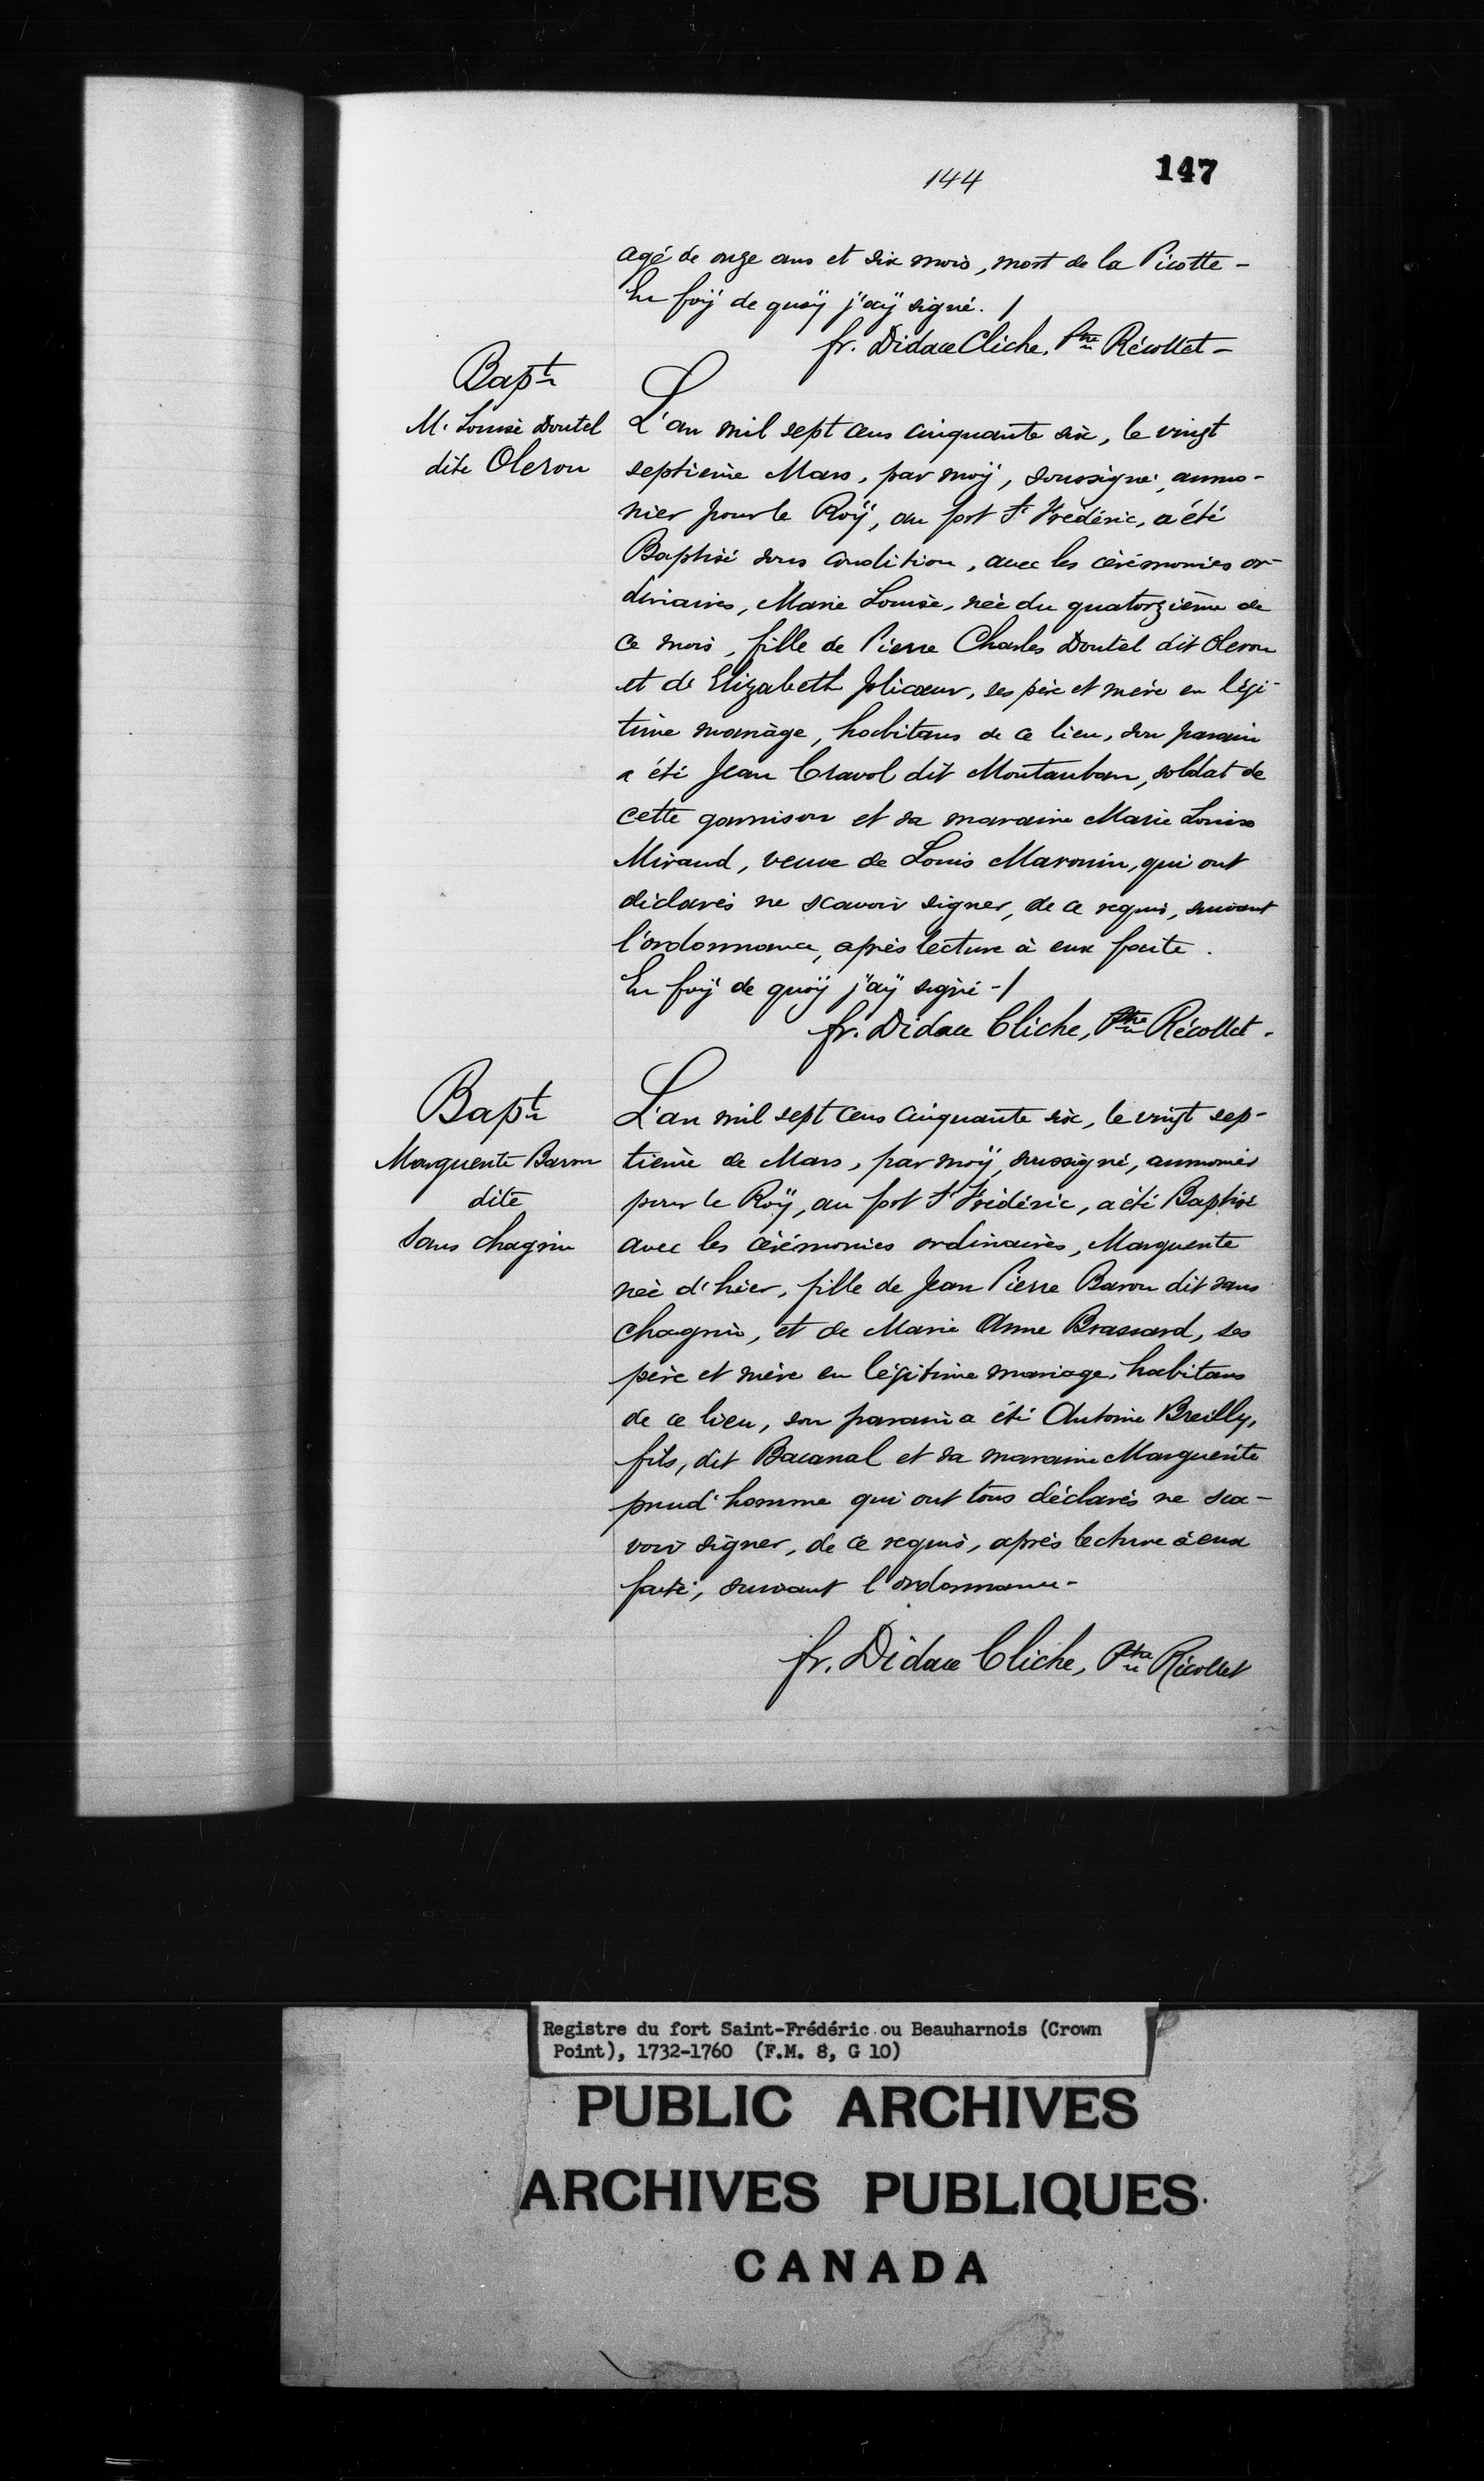 144
147
agé de onze ans et six mois, mort de la Picotte -
En foÿ de quoÿ j'aÿ signé. /
fr. Didace Cliche, Ptre Récollet -
Bapt
M. Louise Doutel
dite Oleron
L'an mil sept cens cinquante six, le vingt
septieme Mars, par moÿ, soussigné, aumo-
nier pour le Roÿ, au fort St Frédéric, a été
Baptisé sous condition, avec les cérémonies or-
dinaires, Marie Louise, née du quatorzième de
ce mois, fille de Pierre Charles Doutel dit Oleron
et de Elizabeth Jolicoeur, ses père et mère en légi-
time mariage, habitans de ce lieu, son parain
a été Jean Cravol dit Montauban, soldat de
cette garnison et sa maraine Marie Louise
Miraud, veuve de Louis Maronin, qui ont
déclarés ne scavoir signer, de ce requis, suivant
l'ordonnance, après lecture à eux faite.
En foÿ de quoÿ j'aÿ signé -/
fr. Didace Cliche, Ptre Récollet.
Bapt
Marguerite Baron
dite
Sans chagrin
L'an mil sept cens cinquante six, le vingt sep-
tième de Mars, par moÿ, sussigné, aumonier
pour le Roÿ, au fort St Frédéric, a été Baptisé
avec les cérémonies ordinaires, Marguerite
née d'hier, fille de Jean Pierre Baron dit sans
chagrin, et de Marie Anne Brassard, ses
père et mère en légitime mariage, habitans
de ce lieu, son parain a été Antoine Breilly,
fils, dit Bacanal et sa maraine Marguerite
prud'homme qui ont tous déclarés ne sca-
voir signer, de ce requis, après lecture à eux
faite, suivant l'ordonnance -
fr. Didace Cliche, Ptre Récollet
Registre du fort Saint-Frédéric ou Beauharnois (Crown
Point), 1732-1760 (F.M. 8, G 10)
PUBLIC ARCHIVES
ARCHIVES PUBLIQUES
CANADA